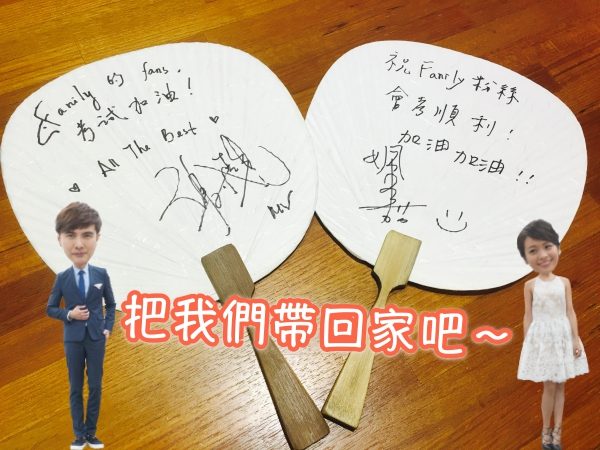 Family 的 fans,
考試加油!
All The Best
祝 Family 粉絲
會考順利!
加油加油!!
把我們帶回家吧～